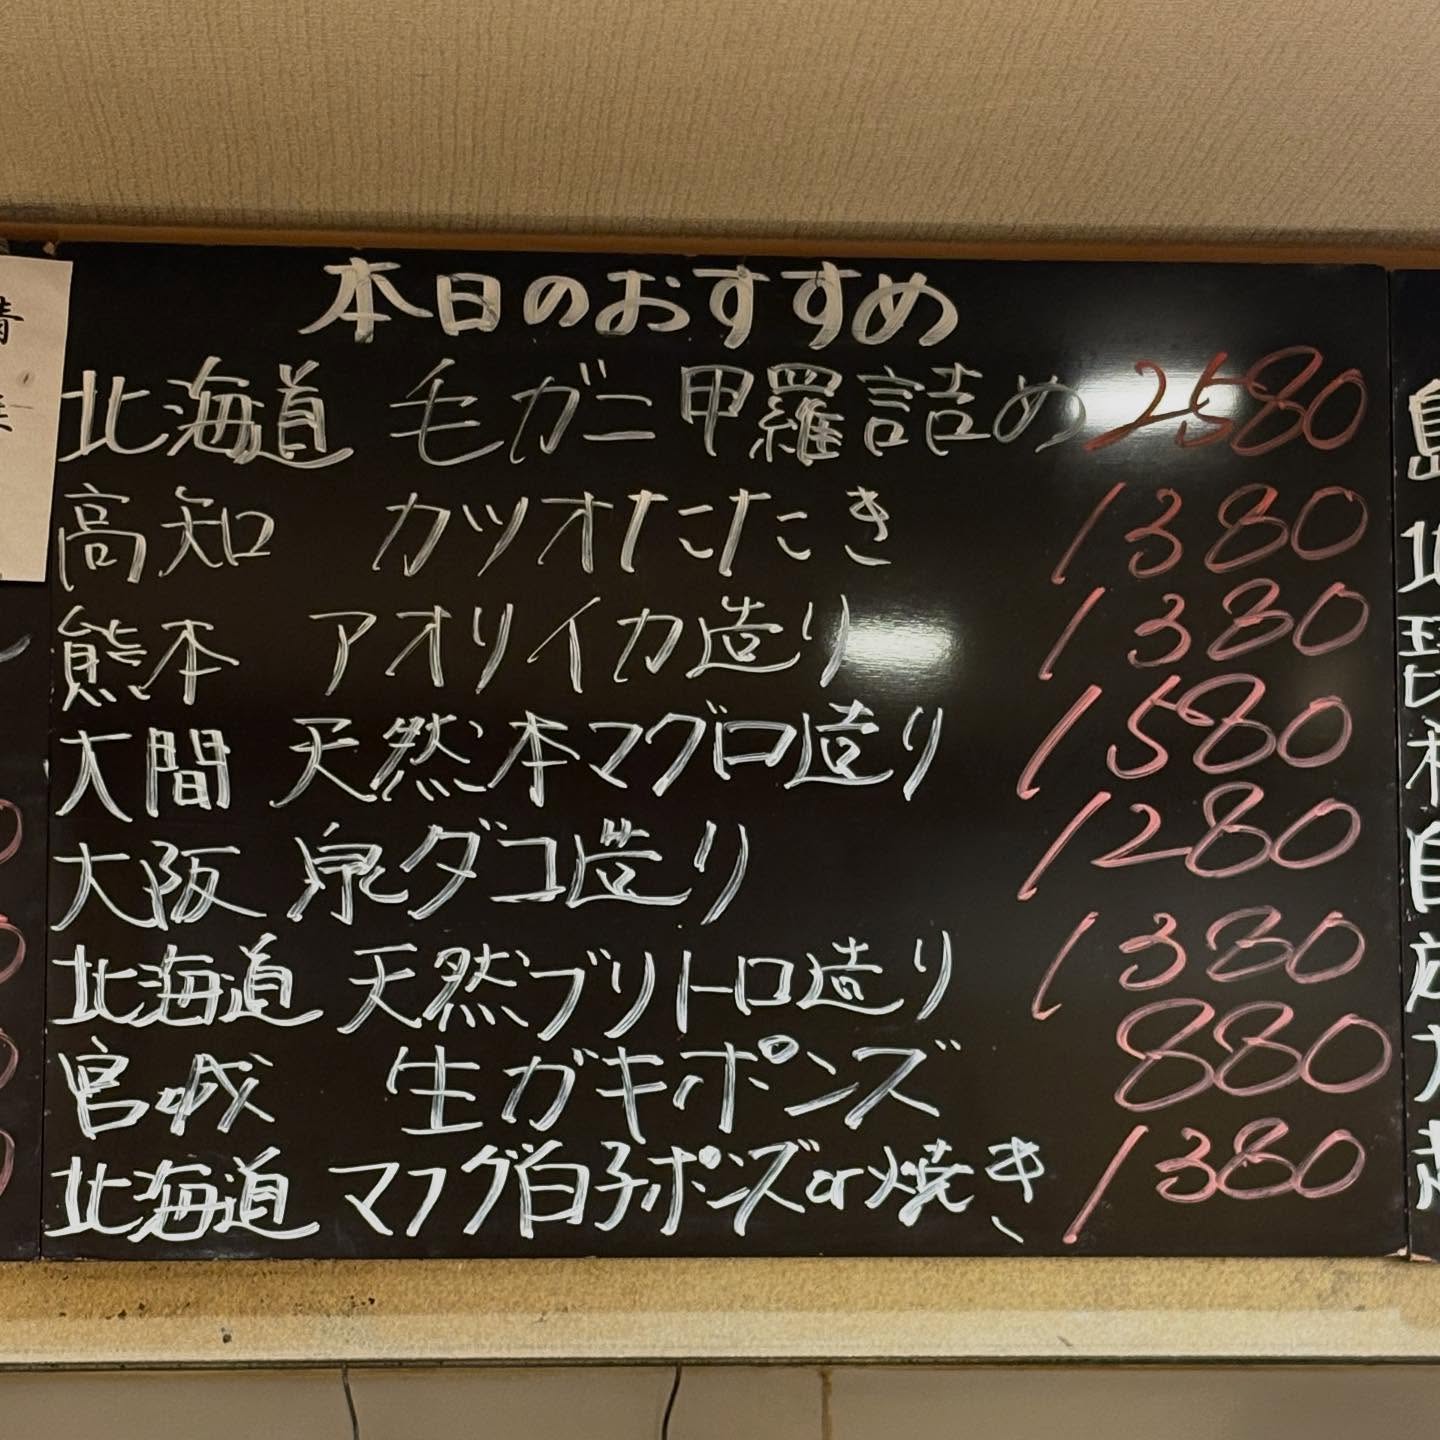 本日のおすすめ
北海道 毛ガニ甲羅詰め 2580
高知 カツオたたき 1380
熊本 アオリイカ造り 1380
大間 天然本マグロ造り 1580
大阪 泉ダコ造り 1280
北海道 天然ブリトロ造り 1380
宮城 生ガキポンズ 880
北海道 マフグ白子ポンズor焼き 1380